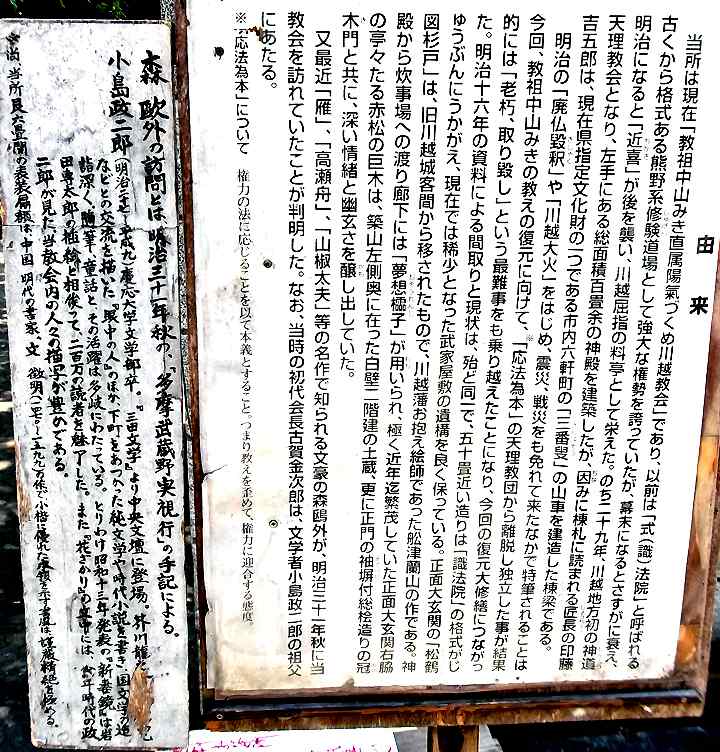 由来
当所は現在「教祖中山みき直属陽氣づくめ川越教会」であり、以前は「式(識)法院」と呼ばれる
古くから格式ある熊野系修験道場として強大な権勢を誇っていたが、幕末になるとさすがに衰え、
明治になると「近喜」が後を襲い、川越屈指の料亭として栄えた。のち二十九年、川越地方初の神道
天理教会となり、左手にある総面積百畳余の神殿を建築したが、因みに棟札に読まれる匠長の印藤
吉五郎は、現在県指定文化財の一つである市内六軒町の「三番叟」の山車を建造した棟梁である。
明治の「廃仏毀釈」や「川越大火」をはじめ、震災、戦災をも免れて来たなかで特筆されることは
今回、教祖中山みきの教えの復元に向けて、「応法為本」の天理教団から離脱し独立した事が結果
的には「老朽、取り毀し」という最難事をも乗り越えたことになり、今回の復元大修繕につながっ
た。明治十六年の資料による間取りと現状は、殆ど同一で、五十畳近い造りは「識法院」の格式がじ
ゅうぶんにうかがえ、現在では稀少となった武家屋敷の遺構を良く保っている。正面大玄関の「松鶴
図杉戸」は、旧川越城客間から移されたもので、川越藩お抱え絵師であった舩津蘭山の作である。神
殿から炊事場への渡り廊下には「夢想櫺子」が用いられ、極く近年迄繁茂していた正面大玄関右脇
の亭々たる赤松の巨木は、築山左側奥に在った白壁二階建の土蔵、更に正門の袖塀付総桧造りの冠
木門と共に、深い情緒と幽玄さを醸し出していた。
又最近「雁」、「高瀬舟」、「山椒太夫」等の名作で知られる文豪の森鴎外が、明治三十一年秋に当
教会を訪れていたことが判明した。なお、当時の初代会長古賀金次郎は、文学者小島政二郎の祖父
にあたる。
※「応法為本」について 権力の法に応じることを以て本義とすること。つまり教えを歪めて、権力に迎合する態度。
森 鷗外の訪問とは明治三十一年秋の、「多摩武蔵野実視行」の手記による。
小島政二郎(明治二十七〜平成六)慶応大学文学部卒。『三田文学』より中央文壇に登場。芥川龍
などとの交流を描いた『眼中の人』のほか、下町をあつかった純文学や時代小説を書き、国文学の造
詣深く、随筆、童話と、その活躍は多岐にわたっている。とりわけ昭和十三年発表の『新妻鏡』は岩
田専太郎の挿絵と相俟って、二百万の読者を魅了した。また『花ざかり』の文中には、幼年時代の政
二郎が見た当教会内の人々の描写が豊かである。
尚、当所長六畳間の表装扁額は、中国 明代の書家、文 徴明